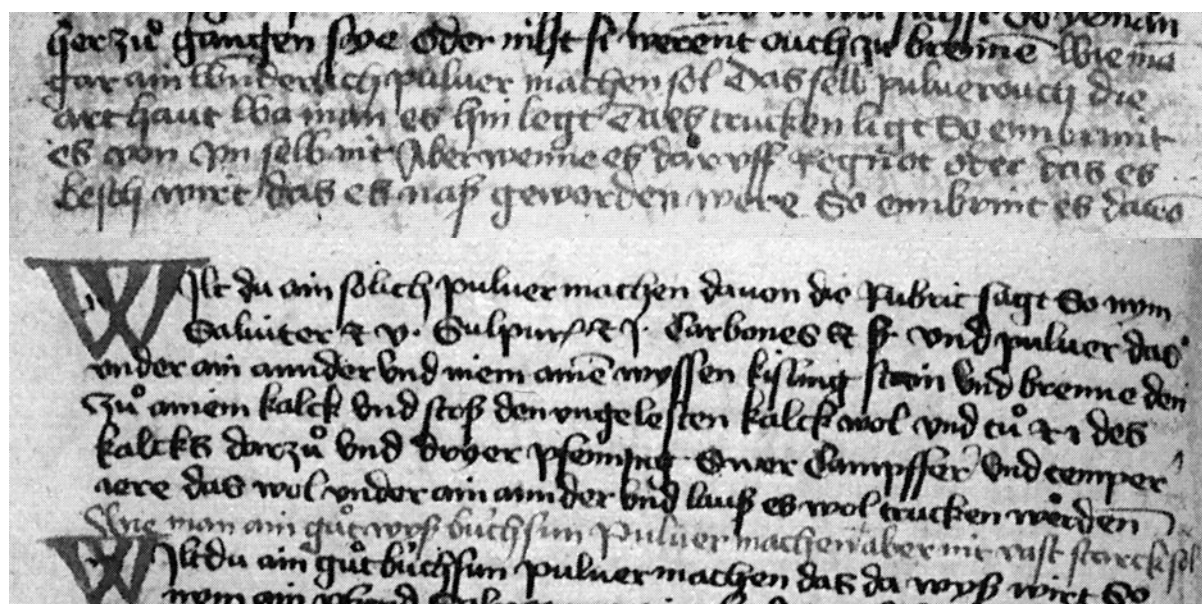 her zuͦ gangen seye oder niht si werent ouch zu brennē Wie mā
gar ain wunderlich puluer machen sol Das selb puluer ouch die
art haut Wa man es hin legt Da es trucken ligt So enbrint
es von ym selb nit Aber wenne es dar vff regnot oder das es
das es naß geworden were So enbrint es
Wilt du ain solich puluer machen dauon die Rubric sagt So nym
Saluiter v. Sulpur j. Carbones vnd puluer das
vnder ain annder vnd niem ainē wyssen kisling stain Vnd brenne den
Zuͦ ainem kalck Vnd stoß den vngelesten kalck wol vnd tuͦ 1 des
kalcks darzuͦ Vnd dryer pfenning swer Campffer Vnd temper
iere das wol vnder ain annder Vnd lauß es wol trucken werden
man ain guͦt wyß buchsun Puluer machen aber nit vast starck sol
Wilt du ain guͦt buchsun puluer machen das da wyß wirt So
nym ain